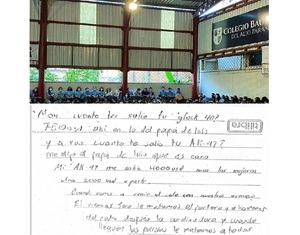 COLEGIO
cuanto te salio tu glock 40?
ahi en lo del papa de luis
y a vos cuanto te salio tu AK-47?
me dijo el papa de luis que es caro
Mi AK-47 me esta 4000usd mas las mejoras
otra 2000 usd aparte
Cuando vamos a venir al cole con nuestras armas
El le matamos al portero y a
del patio despues la cordinadora y cuando
lleguen los policias le metemos a todos